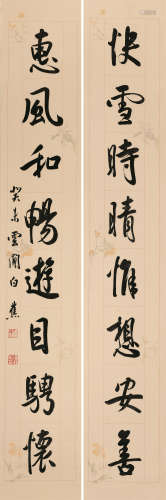 快雪時晴惟想安善
惠風和暢遊目騁懷
癸未雲間白蕉